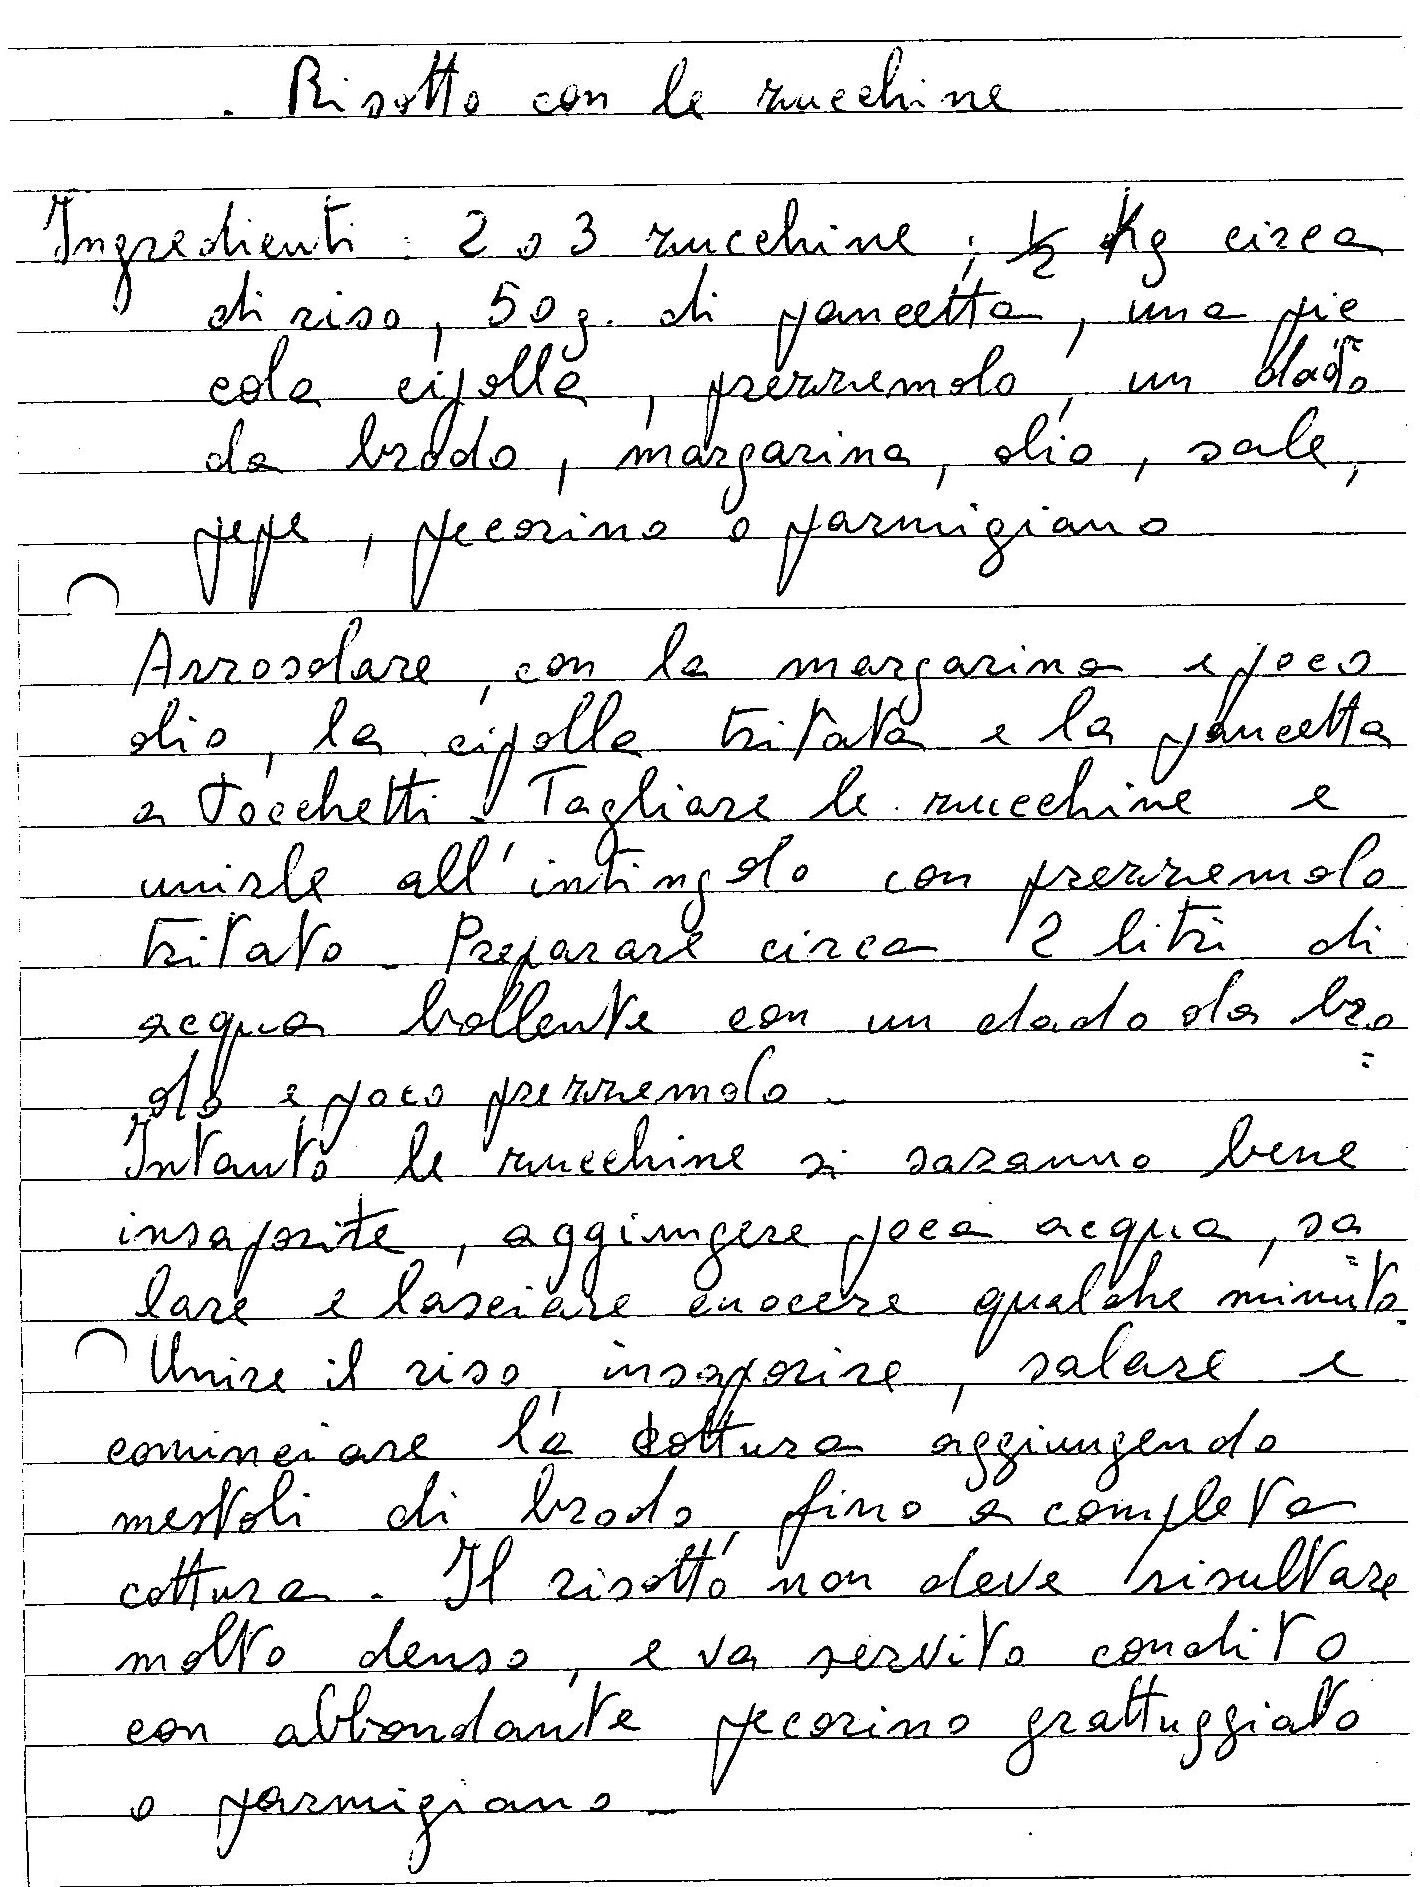 . Risotto con le zucchine
Ingredienti : 2 o 3 zucchine ; ½ Kg circa
di riso, 50 g. di pancetta, una pic
cola cipolla, prezzemolo, un dado
da brodo, margarina, olio, sale,
pepe, pecorino o parmigiano
Arrosolare, con la margarina e poco
olio, la cipolla tritata e la pancetta
a tocchetti. Tagliare le zucchine e
unirle all'intingolo con prezzemolo
tritato - Preparare circa 2 litri di
acqua bollente con un dado da bro=
do e poco prezzemolo -
Intanto le zucchine si saranno bene
insaporite, aggiungere poca acqua, sa=
lare e lasciare cuocere qualche minuto.
Unire il riso, insaporire, salare e
cominciare la cottura aggiungendo
mestoli di brodo, fino a completa
cottura. Il risotto non deve risultare
molto denso, e va servito condito
con abbondante pecorino grattuggiato
o parmigiano -